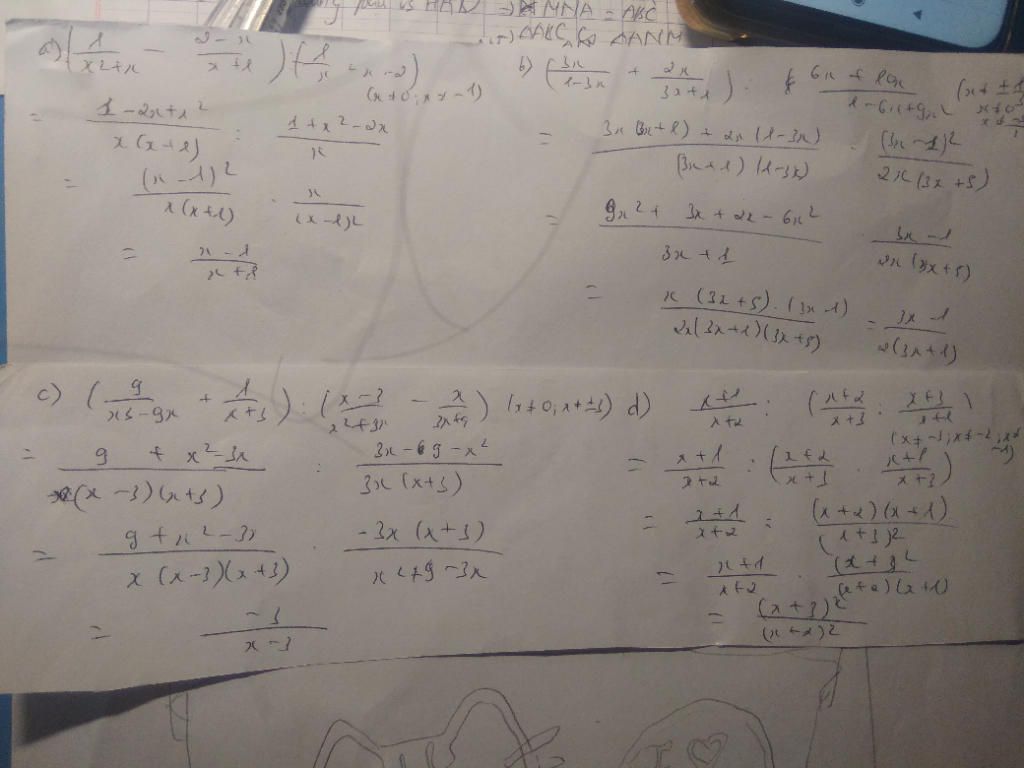 ⇒ △MNA = ABC
△ABC ∽ △ANM
a) (1/(x²+x) − (2−x)/(x+1)) : (1/x + x − 2)
(x≠0; x≠−1)
= (1−2x+x²)/(x(x+1)) : (1+x²−2x)/x
= (x−1)²/(x(x+1)) · x/(x−1)²
= (x−1)/(x+1)
b) (3x/(1−3x) + 2x/(3x+1)) : (6x+10x)/(1−6x+9x²) (x≠±1
x≠0
= (3x(3x+1) + 2x(1−3x))/((3x+1)(1−3x)) · (3x−1)²/(2x(3x+5))
= (9x² + 3x + 2x − 6x²)/(3x+1) · (3x−1)/(2x(3x+5))
= (x(3x+5).(3x−1))/(2x(3x+1)(3x+5)) = (3x−1)/(2(3x+1))
c) (9/(x3−9x) + 1/(x+3)) : ((x−3)/(x²+3x) − x/(3x+9)) (x≠0; x≠±3)
= (9 + x²−3x)/((x−3)(x+3)) : (3x−9−x²)/(3x(x+3))
= (9+x²−3x)/(x(x−3)(x+3)) · (−3x(x+3))/(x²+9−3x)
= −3/(x−3)
d) (x+1)/(x+2) : ((x+2)/(x+3) : (x+3)/(x+1))
(x≠−3; x≠−2; x≠−1)
= (x+1)/(x+2) : ((x+2)/(x+3) · (x+1)/(x+3))
= (x+1)/(x+2) : ((x+2)(x+1))/(x+3)²
= (x+1)/(x+2) · (x+3)²/((x+2)(x+1))
= (x+3)²/(x+2)²
I ♡